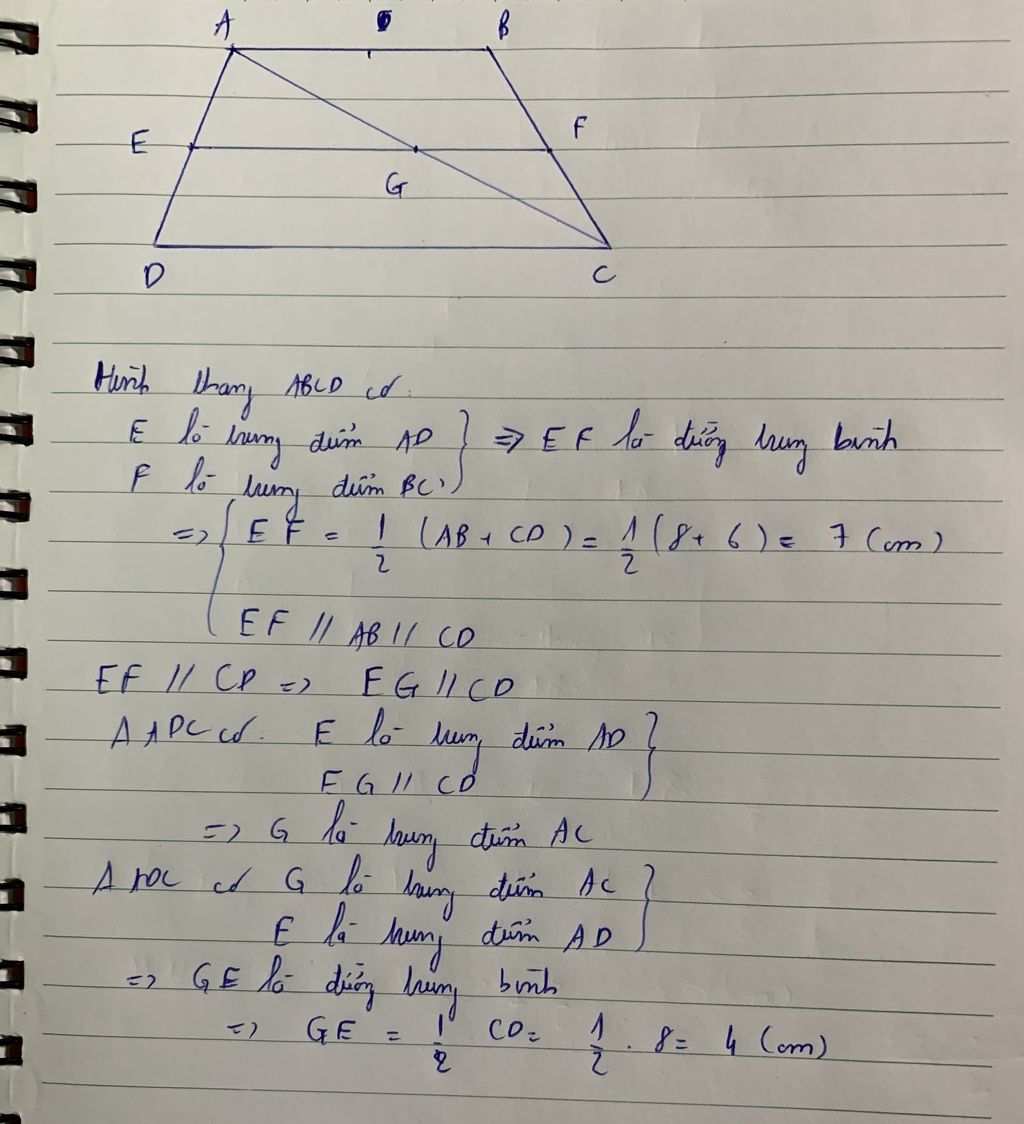 A B
E F
G
D C
Hình thang ABCD có:
E là trung điểm AD } => EF là đường trung bình
F là trung điểm BC }
=> { EF = 1/2 (AB + CD) = 1/2 (8 + 6) = 7 (cm)
EF // AB // CD
EF // CD => EG // CD
Δ ADC có: E là trung điểm AD }
EG // CD }
=> G là trung điểm AC
Δ ADC có G là trung điểm AC }
E là trung điểm AD }
=> GE là đường trung bình
=> GE = 1/2 CD = 1/2 . 8 = 4 (cm)